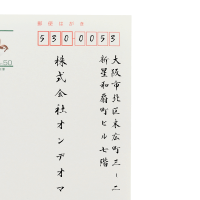 郵便はがき
530-0053
大阪市北区末広町三ー二
新星和扇町ビル七階
株式会社オンデオマ
50